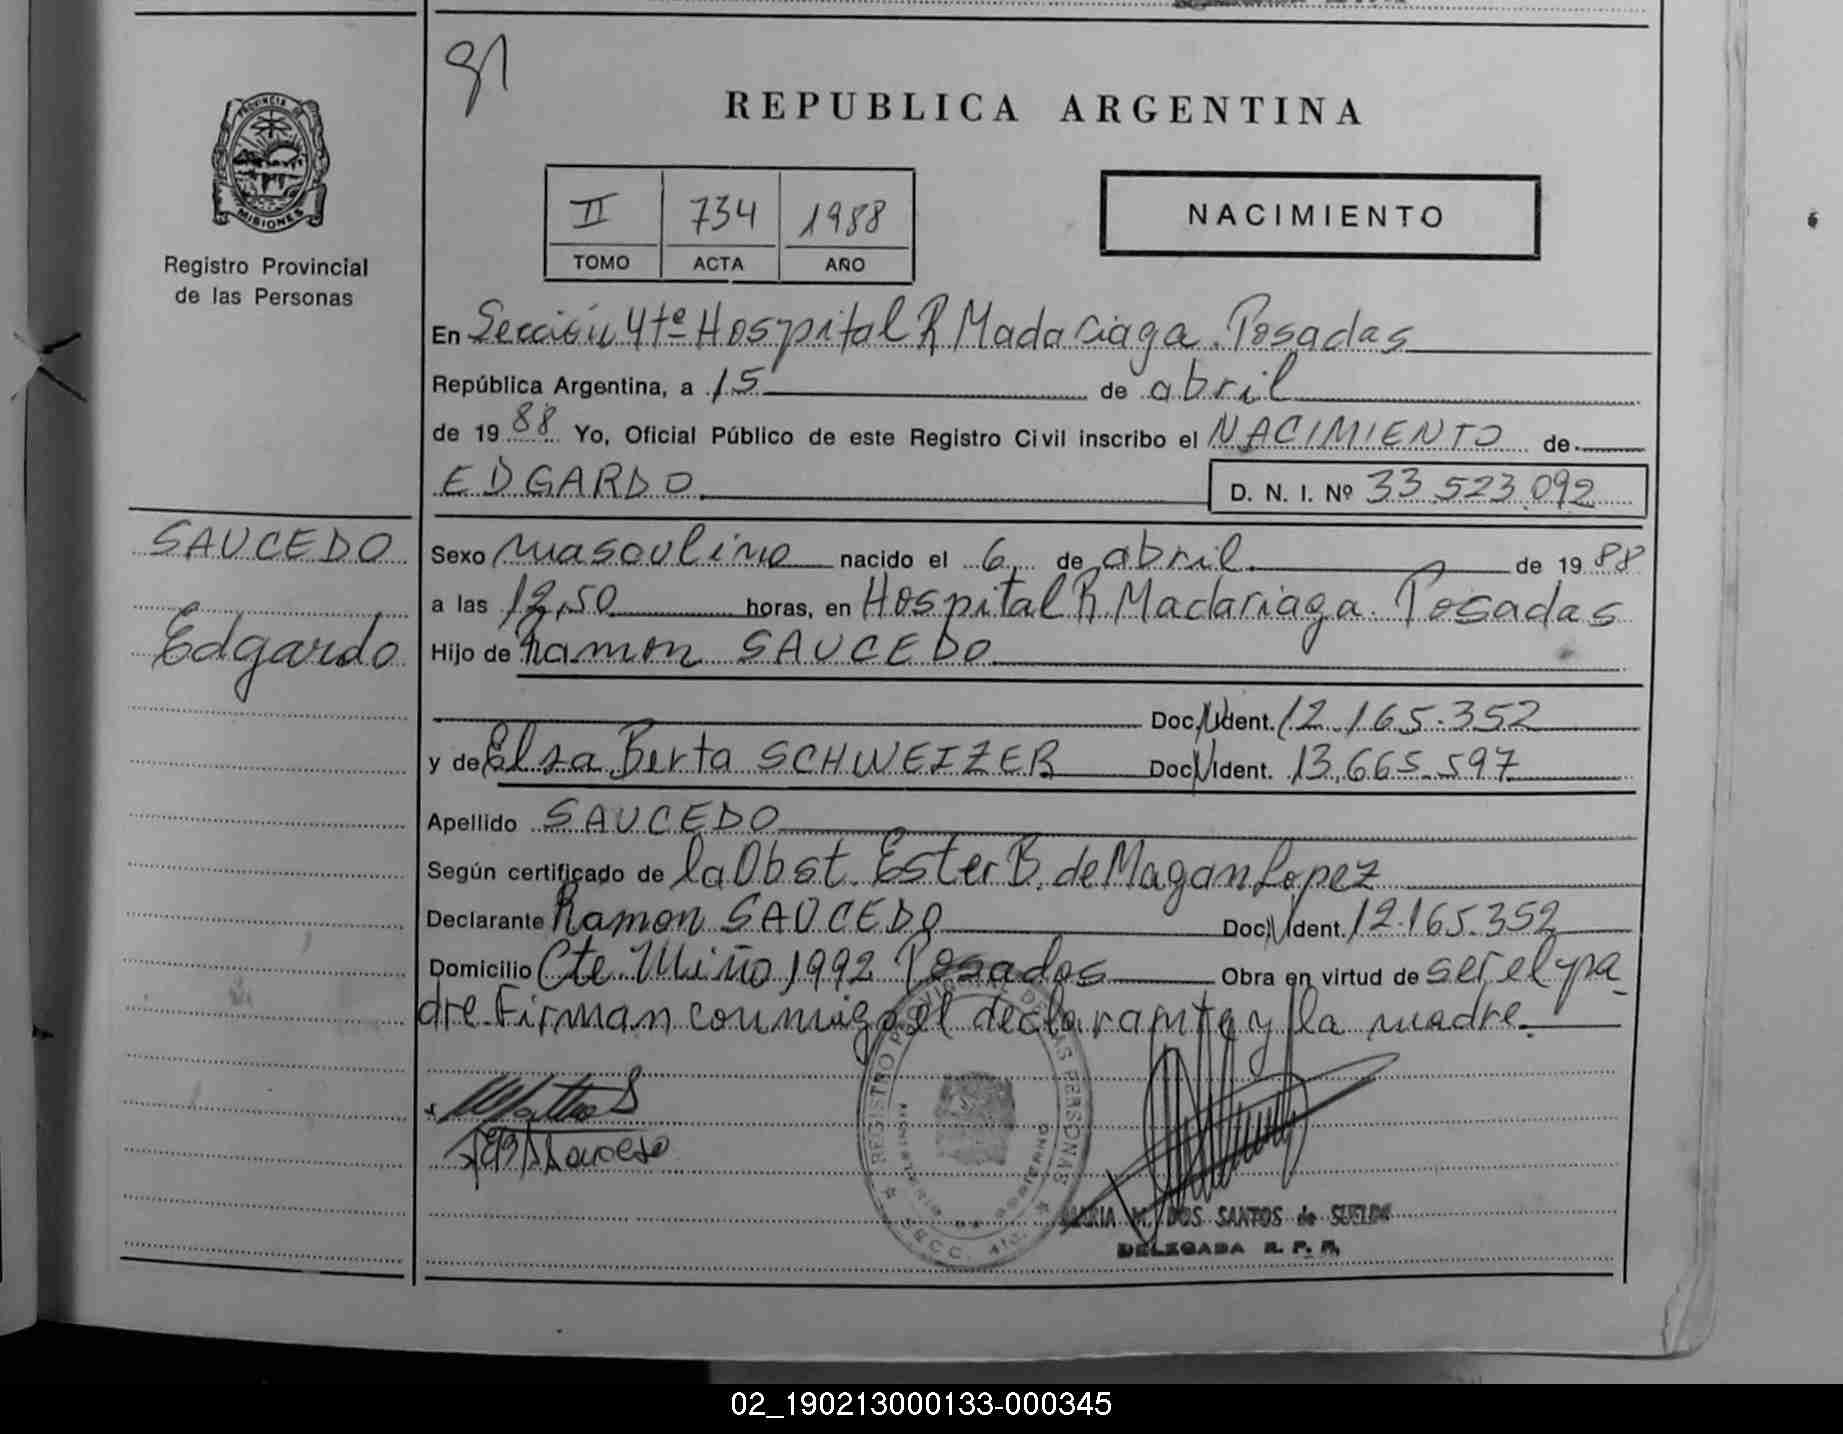 91
REPUBLICA ARGENTINA
PROVINCIA DE
MISIONES
Registro Provincial
de las Personas
II 734 1988
TOMO ACTA AÑO
NACIMIENTO
En Sección 4tª Hospital R Madariaga. Posadas
República Argentina, a 15 de abril
de 19 88 Yo, Oficial Público de este Registro Civil inscribo el NACIMIENTO de
EDGARDO D. N. I. Nº 33.523.092
SAUCEDO
Edgardo
Sexo masculino nacido el 6 de abril de 19 88
a las 12,50 horas, en Hospital R. Madariaga. Posadas
Hijo de Ramon SAUCEDO
Doc. Ident. 12.165.352
y de Elsa Berta SCHWEIZER Doc. Ident. 13.665.597
Apellido SAUCEDO
Según certificado de la Obst. Ester B. de Magan Lopez
Declarante Ramon SAUCEDO Doc. Ident. 12.165.352
Domicilio Cte Miño 1992 Posadas Obra en virtud de ser el pa
dre. Firman conmigo el declarante y la madre.
REGISTRO PROVINCIAL DE LAS PERSONAS
MINISTERIO DE GOBIERNO
SECC. 4ta.
MARIA M. DOS SANTOS de SUELDO
DELEGADA R. P. P.
02_190213000133-000345